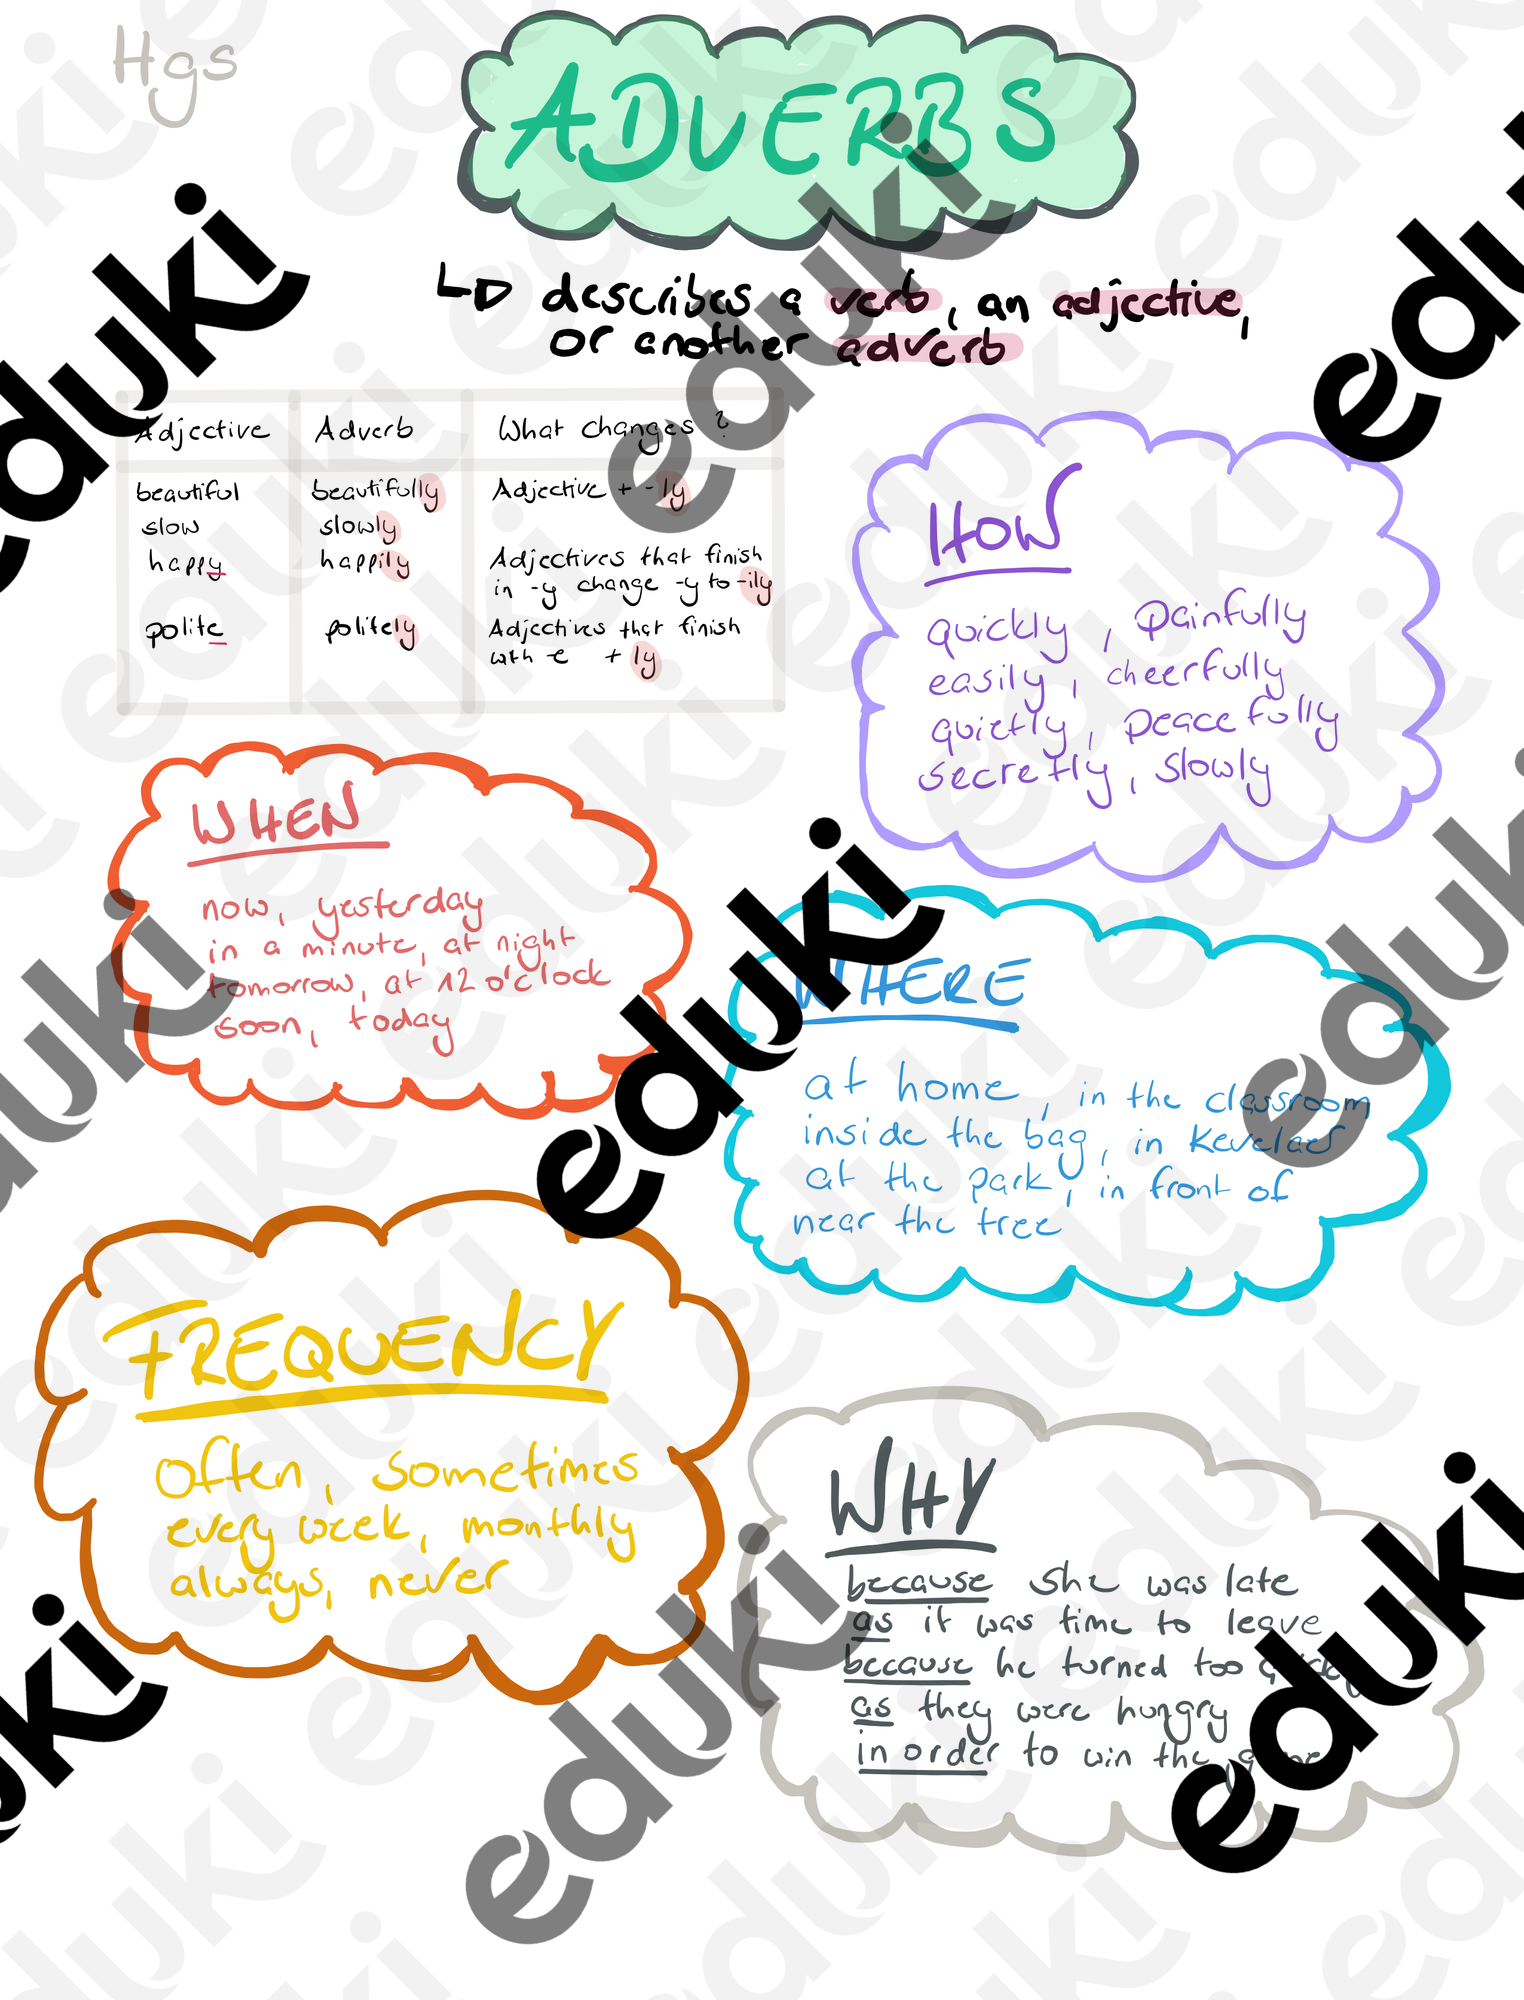 Hgs
ADVERBS
describes a verb, an adjective,
or another adverb
Adjective Adverb What changes ?
beautiful beautifully Adjective + -ly
slow slowly
happy happily Adjectives that finish
in -y change -y to -ily
polite politely Adjectives that finish
with -e + ly
HOW
quickly, painfully
easily, cheerfully
quietly, peacefully
secretly, slowly
WHEN
now, yesterday
in a minute, at night
tomorrow, at 12 o'clock
soon, today
WHERE
at home, in the classroom
inside the bag, in Kevelaer
at the park, in front of
near the tree
FREQUENCY
often, sometimes
every week, monthly
always, never
WHY
because she was late
as it was time to leave
because he turned too
as they were hungry
in order to win the
eduki
eduki
eduki
eduki
eduki
eduki
eduki
eduki
eduki
eduki